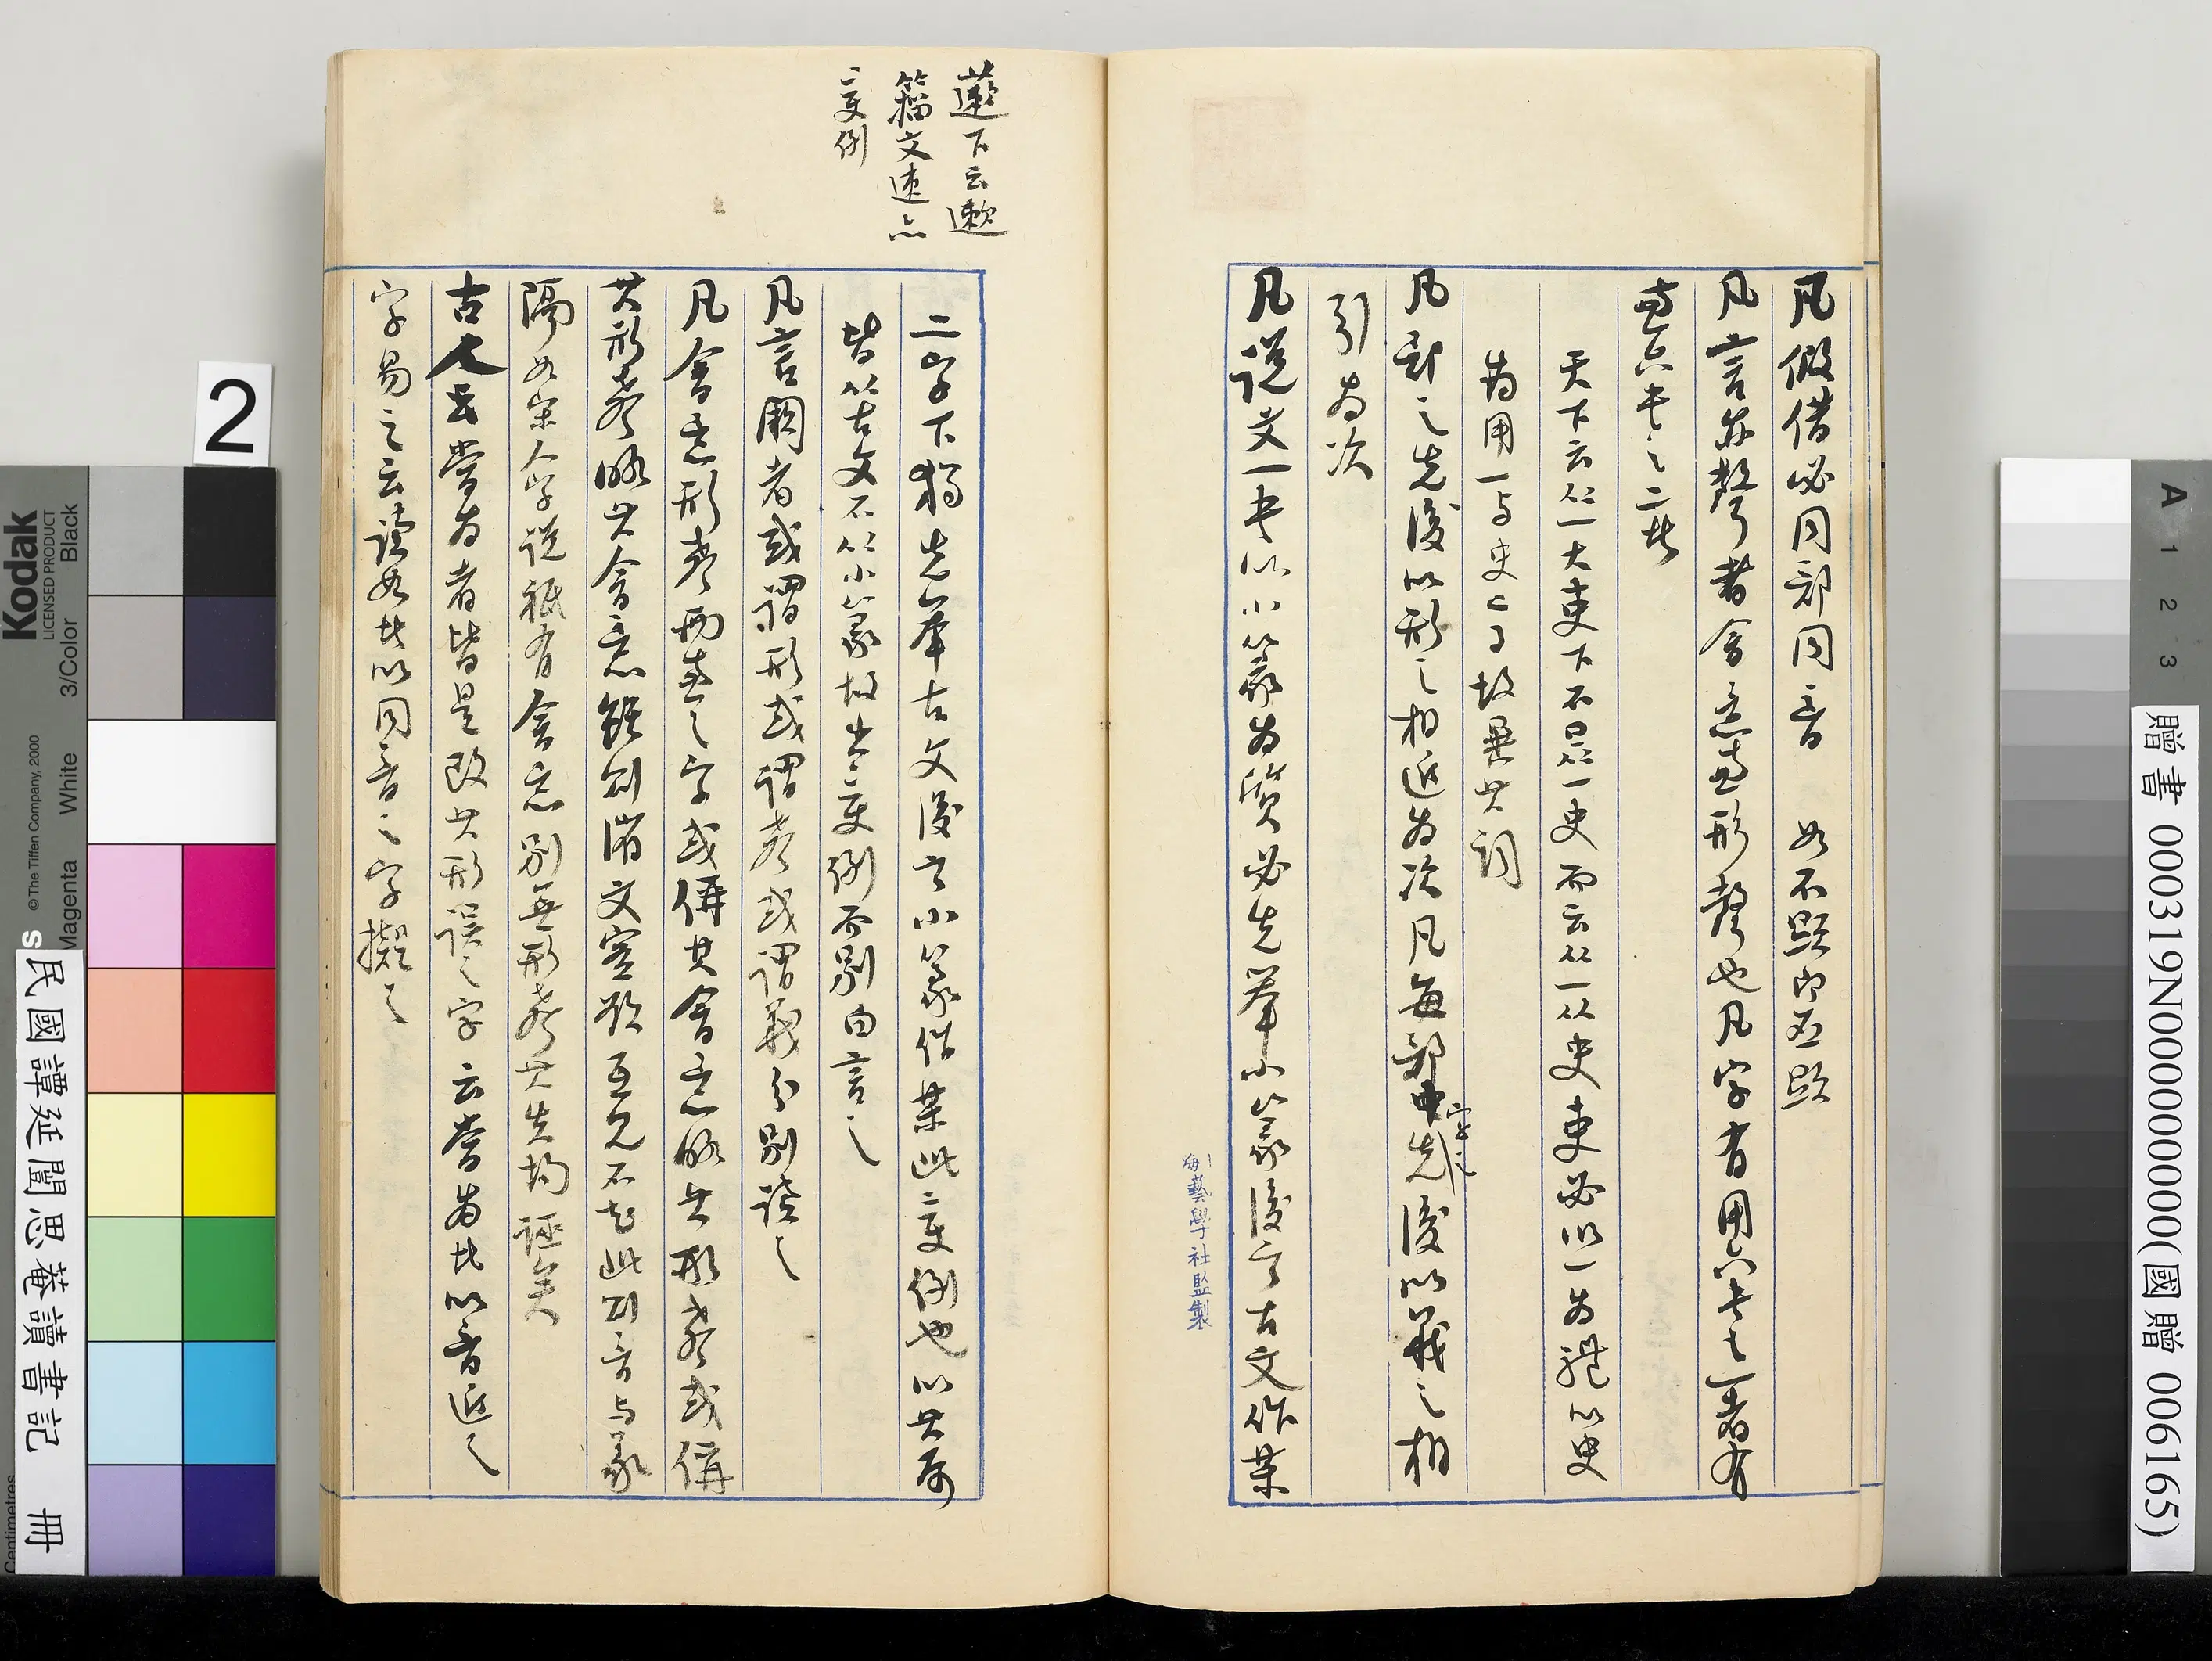 凡假借必同部同音　如不顯即丕顯
凡言亦聲者會意兼形聲也凡字有用六書之一者有
兼六書之二者
天下云从一大吏下不曰从一史而云从一从史吏必以一為體以史
為用一與史二事故異其詞
凡部之先後以形之相近為次凡每部中字之先後以義之相
引為次
凡說文一書以小篆為質必先舉小篆後言古文作某
二字下獨先舉古文後言小篆作某此變例也以其屬
皆从古文不从小篆故出變例而別白言之
凡言闕者或謂形或謂聲或謂義分別讀之
凡會意形聲兩兼之字或偁其會意略其形聲或偁
其形聲略其會意雖則渻文實欲互見不知此則音與篆
隔如宋人字說祇有會意別無形聲其失均誣矣
古人云當為者皆是改其形誤之字云當為者以音近之
字易之云讀如者以同音之字擬之
蓮下云遬
籀文速亦
變例
藝學社監製
2
Kodak
LICENSED PRODUCT
© The Tiffen Company, 2000
3/Color
Black
White
Magenta
Centimetres
民國譚延闓思菴讀書記 冊
A
1
2
3
贈書 000319N000000000000(國贈 006165)